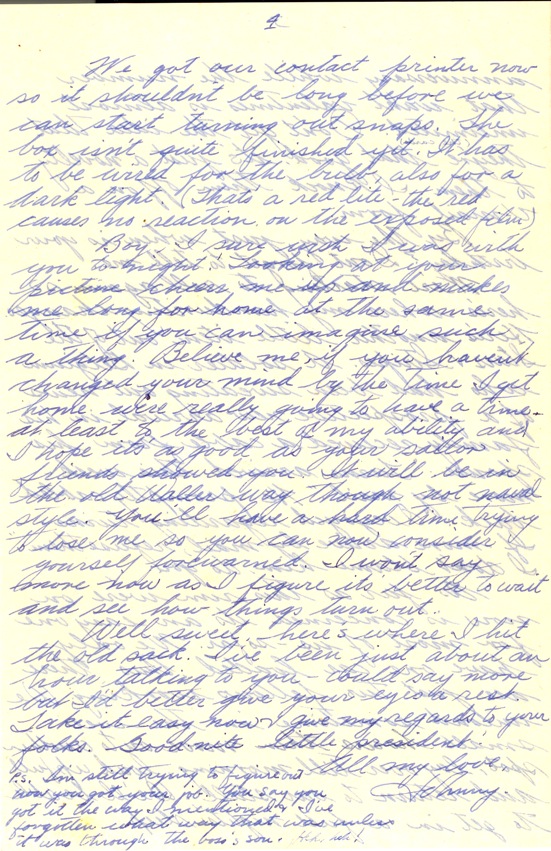 4
We got our contact printer now
so it shouldn't be long before we
can start turning out snaps. The
box isn't quite finished yet. It has
to be wired for the bulb, also for a
dark light. (That's a red lite - the red
causes no reaction on the exposed film)
Boy, I sure wish I was with
you to-night. Looking at your
picture cheers me up and makes
me long for home at the same
time if you can imagine such
a thing. Believe me, if you haven't
changed your mind by the time I get
home we're really going to have a time -
at least to the best of my ability and
I hope its as good as your sailor
friends showed you. It will be in
the old way though not naval
style. You'll have a hard time trying
to lose me so you can now consider
yourself forewarned. I won't say
more now as I figure its better to wait
and see how things turn out.
Well sweet, - here's where I hit
the old sack. I've been just about an
hour talking to you - could say more
but I'd better give your eyes a rest.
Take it easy now & give my regards to your
folks. Goodnite little president.
All my love
Johnny.
P.S. I'm still trying to figure out
how you got your job. You say you
got it the way I mentioned & I've
forgotten what way that was unless
it was through the boss's son.